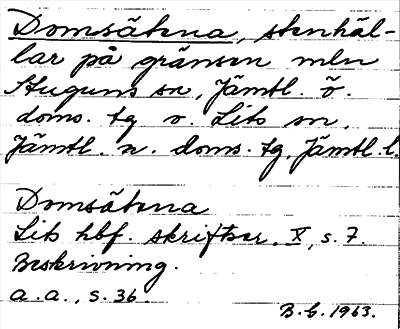 Domsätena, stenhäl-
lar på gränsen mln
Stuguns sn, Jämtl. ö.
doms. tg o. Lits sn,
Jämtl. n. doms. tg, Jämtl. l.
Domsätena
Lits hbf. skriftser. X, s. 7.
Beskrivning.
a. a., s. 36.
B. G. 1963.